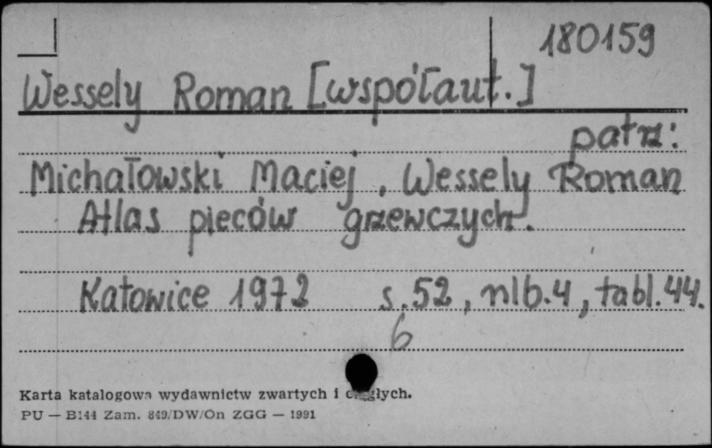 180159
Wessely Roman [współaut.]
patrz:
Michałowski Maciej, Wessely Roman
Atlas pieców grzewczych.
Katowice 1972 s. 52, nlb. 4, tabl. 44.
6
Karta katalogowa wydawnictw zwartych i
PU — B144 Zam. 849/DW/On ZGG — 1991